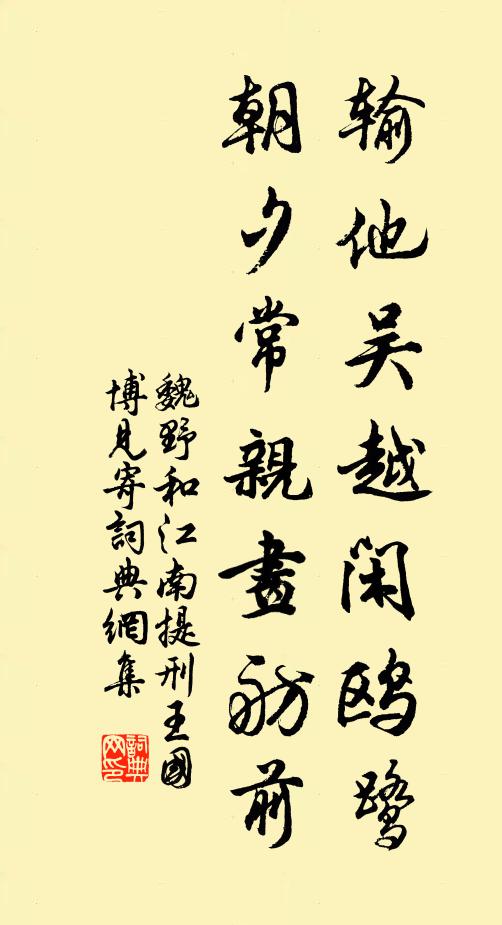 輸他吳越閑鷗鷺
朝夕常親畫舫前
魏野和江南提刑王國
博見寄詞典網集
詞典網印